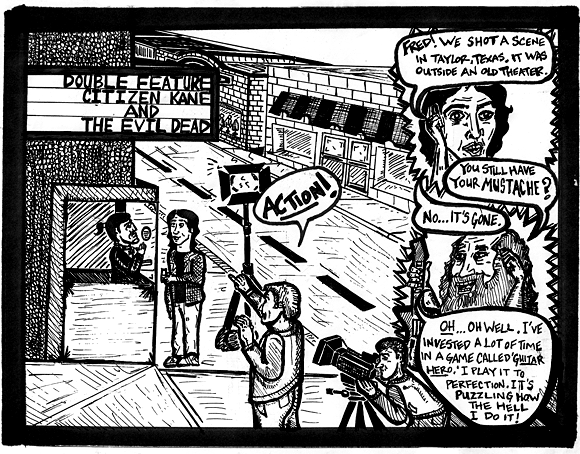 DOUBLE FEATURE
CITIZEN KANE
AND
THE EVIL DEAD
ACTION!
FRED! WE SHOT A SCENE
IN TAYLOR, TEXAS. IT WAS
OUTSIDE AN OLD THEATER.
YOU STILL HAVE
YOUR MUSTACHE?
NO...IT'S GONE.
OH...OH WELL, I'VE
INVESTED A LOT OF TIME
IN A GAME CALLED 'GUITAR
HERO.' I PLAY IT TO
PERFECTION. IT'S
PUZZLING HOW
THE HELL
I DO IT!